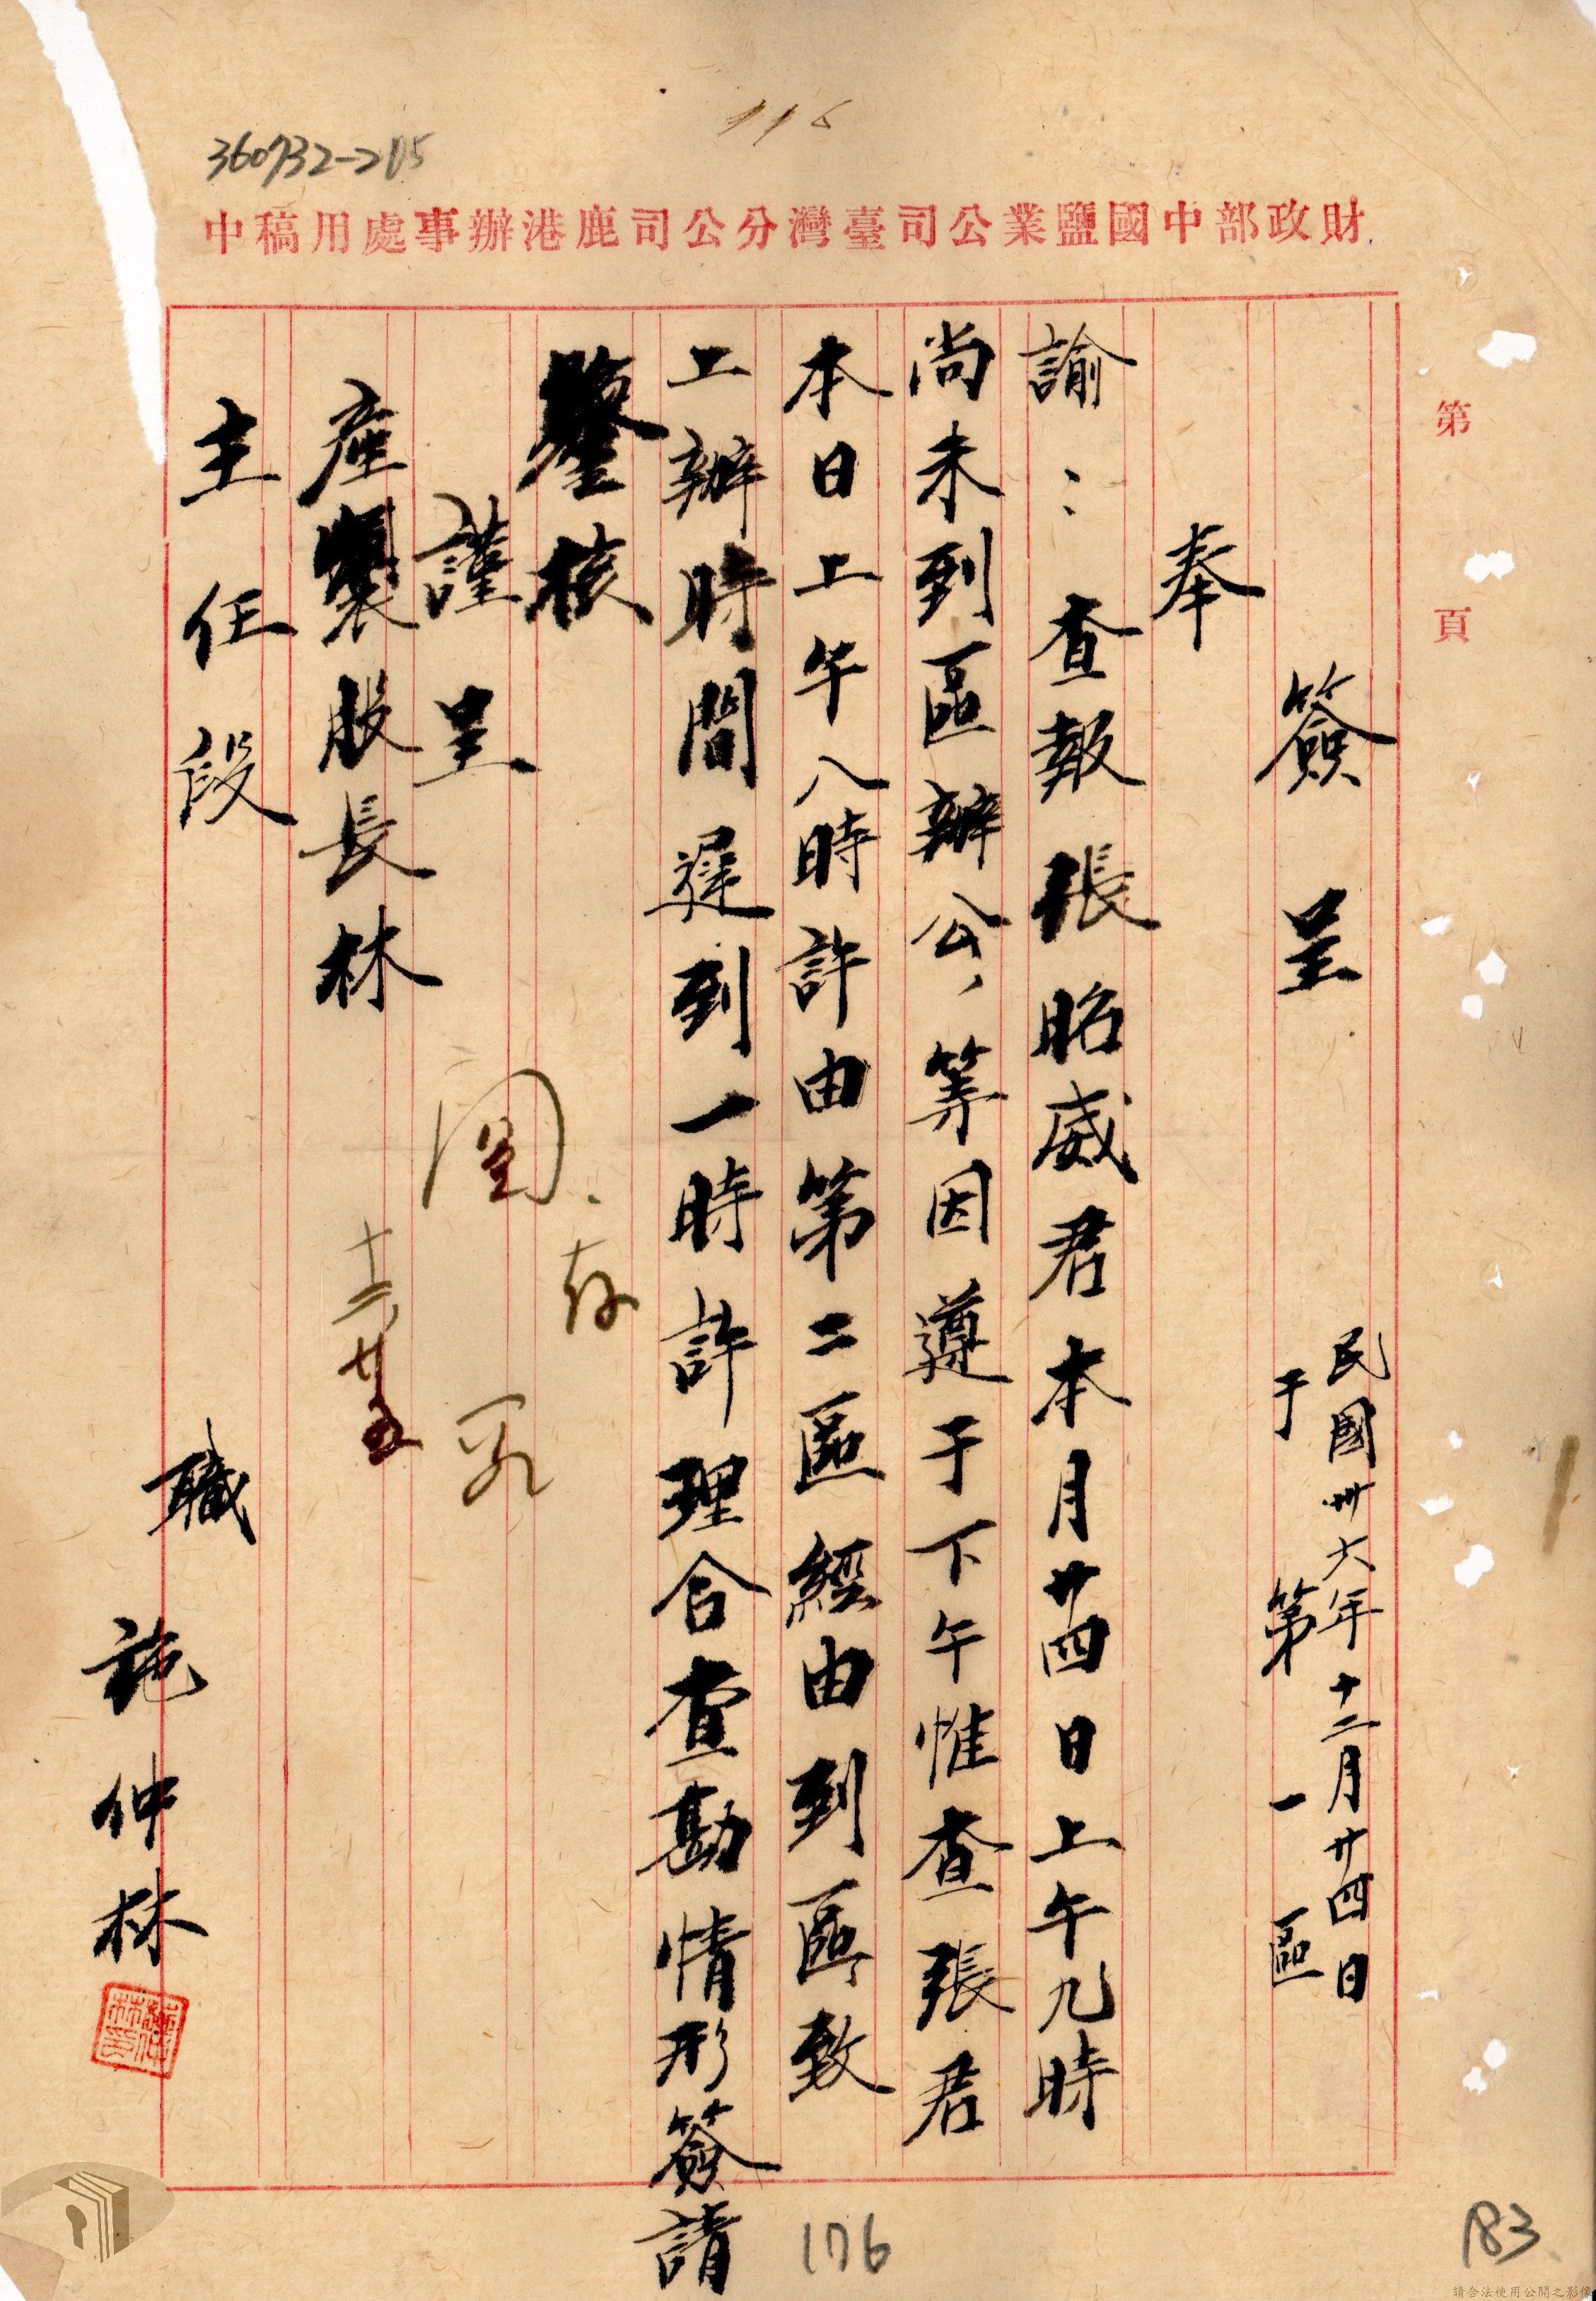 116
360732-205
財政部中國鹽業公司臺灣分公司鹿港辦事處用稿中
第 頁
簽 呈
民國卅六年十二月廿四日
于 第一區
奉
諭：查報張昭威君本月廿四日上午九時
尚未到區辦公，等因遵于下午惟查張君
本日上午八時許由第二區經由到區致
上辦時間遲到一時許理合查勘情形簽請
鑒核
謹呈
產製股長林
主任段
職 施仲林
存
閱
十二、廿五
176
183
請合法使用公開之影像